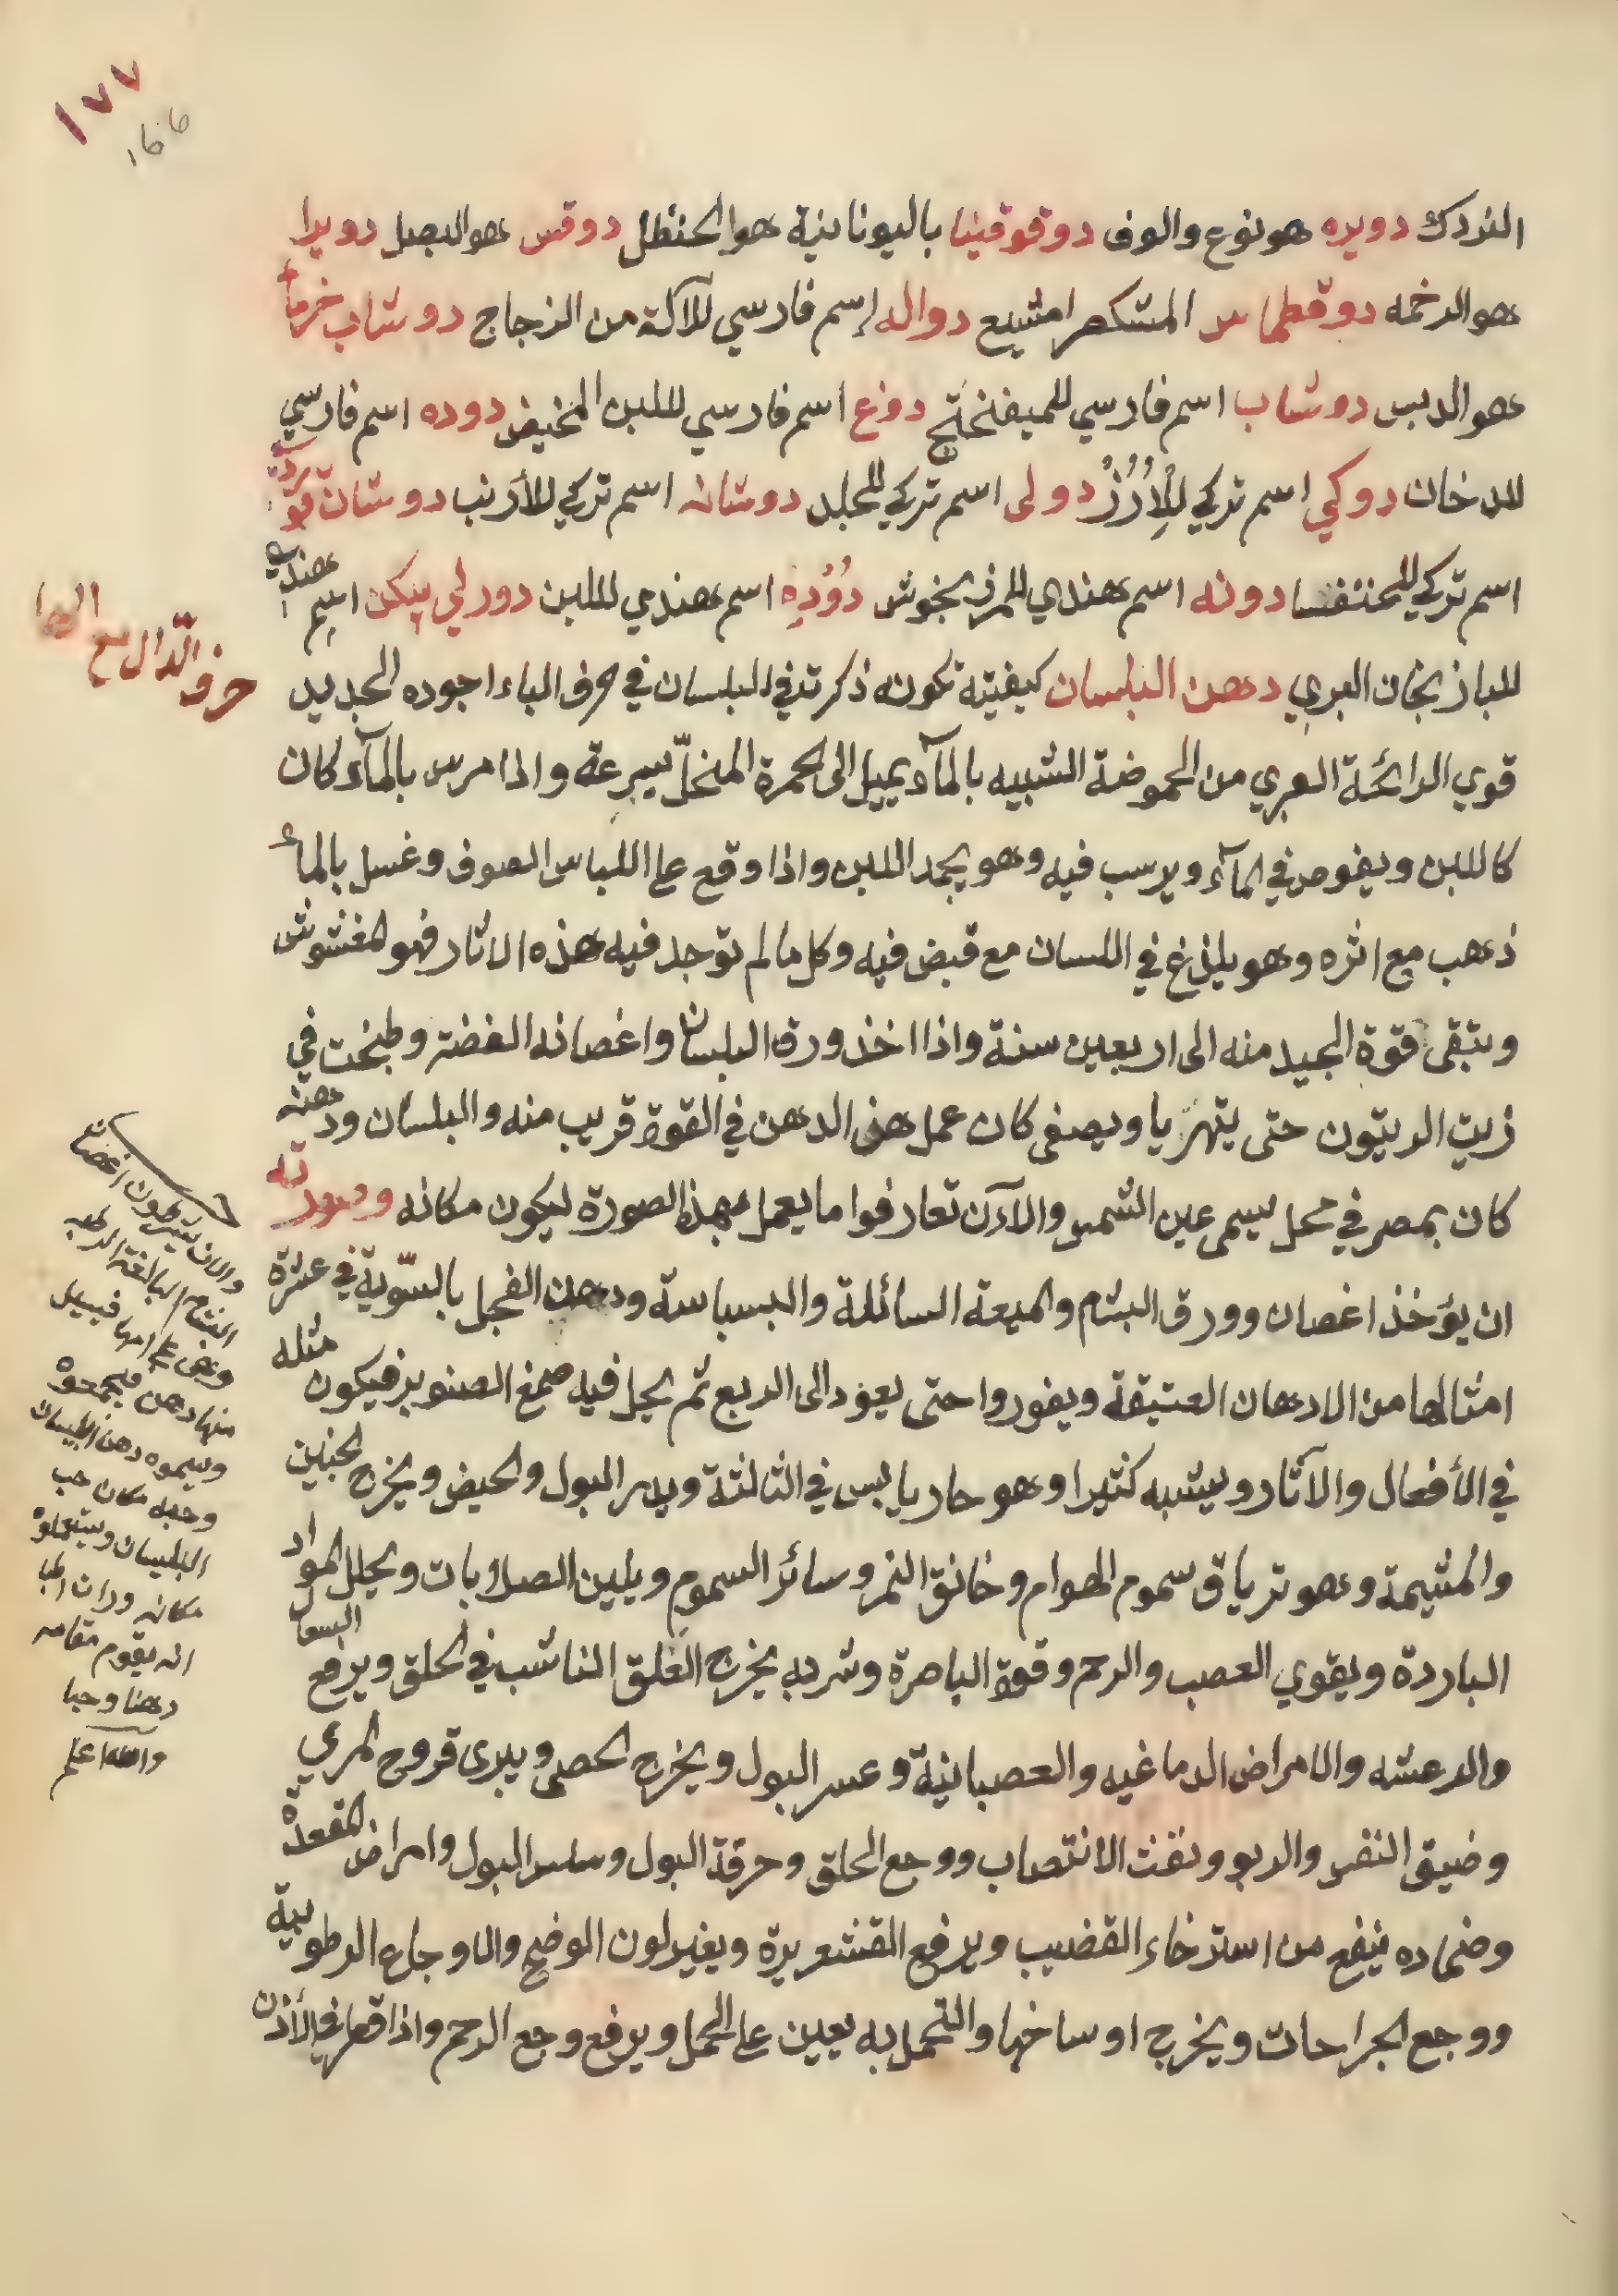 ١٧٧
١٦٦
الزردك دويره هو نوع والوف دوقوقينا باليونانية هو الحنظل دوقس هو البصل دويرا
هو الرخمه دوقطماس المشكطرامشيع دواله إسم فارسي للآلة من الزجاج دوشاب خرمأ
هو الدبس دوشاب اسم فارسي للميفنختج دوغ اسم فارسي للبن المخيض دوده اسم فارسي
للدخان دوكي اسم تركي للأرُزُ دولى اسم تركي للجلد دوشان اسم تركي للأرنب دوشان قو
اسم تركي للخنفسا دونه اسم هندي للمرزنجوش دُوُدِه اسم هندي للبن دورلي بيكن اسم هندي
حرف الدّال مع الها
للباذنجان البري دهن البلسان كيفيته تكونه ذكرته في البلسان في حرف الباء اجوده الجديد
قوي الرائحة البري من الحموضة الشبيه بالمآء يميل الى الحمرة المنحلّ بسرعة واذا مرس بالمآء كان
كاللبن ويغوص في المآء ويرسب فيه وهو يجمد اللبن واذا وقع على اللباس الصوف وغسل بالمأ
ذهب مع اثره وهو يلذغ في اللسان مع قبض فيه وكل ما لم توجد فيه هذه الاثار فهو المغشوش
وتبقى قوة الجيد منه الى اربعين سنة واذا اخذ ورق البلسان واغصانه الغضة وطبخت في
زيت الزيتون حتى يتهرّيا ويصفى كان عمل هذا الدهن في القوة قريب منه والبلسان ودهنه
كان بمصر في محل يسمى عين الشمس والآن تعارفوا ما يعمل بهذه الصورة ليكون مكانه وصورته
ان يؤخذ اغصان وورق البشام والميعة السائلة والبسباسة ودهن الفجل بالسّوية في عشرة
امثالها من الادهان العتيقة ويفوروا حتى يعود الى الربع ثم يحل فيه صمغ الصنوبر فيكون مثله
في الأفعال والآثار ويشبه كثيرا وهو حار يابس في الثالثة ويدر البول والحيض ويخرج الجنين
والمشيمة وهو ترياق سموم الهوام وخانق النمر وسائر السموم ويلين الصلابات ويحلل المواد
الباردة ويقوي العصب والرحم وقوة الباصرة وشربه يخرج العلق الناشب في الحلق ويرفع السعال
والرعشه والامراض الدماغيه والعصبانيّة وعسر البول ويخرج الحصى ويبرى قروح المري
وضيق النفس والربو ونفث الانتصاب ووجع الحلق وحرقة البول وسلس البول وامراض المقعدة
وضماده ينفع من استرخاء القضيب ويرفع القشعريرة ويغير لون الوضح والاوجاع الرطوبية
ووجع الجراحات ويخرج اوساخها والتحمل به يعين على الحمل ويرفع وجع الرحم واذا قطر في الأذن
والان يشرطون اغصان
البشام البالغة الرطبه
وهى على امها فيسيل
منها دهن فيجمعوه
ويسموه دهن البلسان
وحبه مكان حب
البلسان ويستعملوه
مكانه
انه يقوم مقامه
دهنا وحبا
والله اعلم